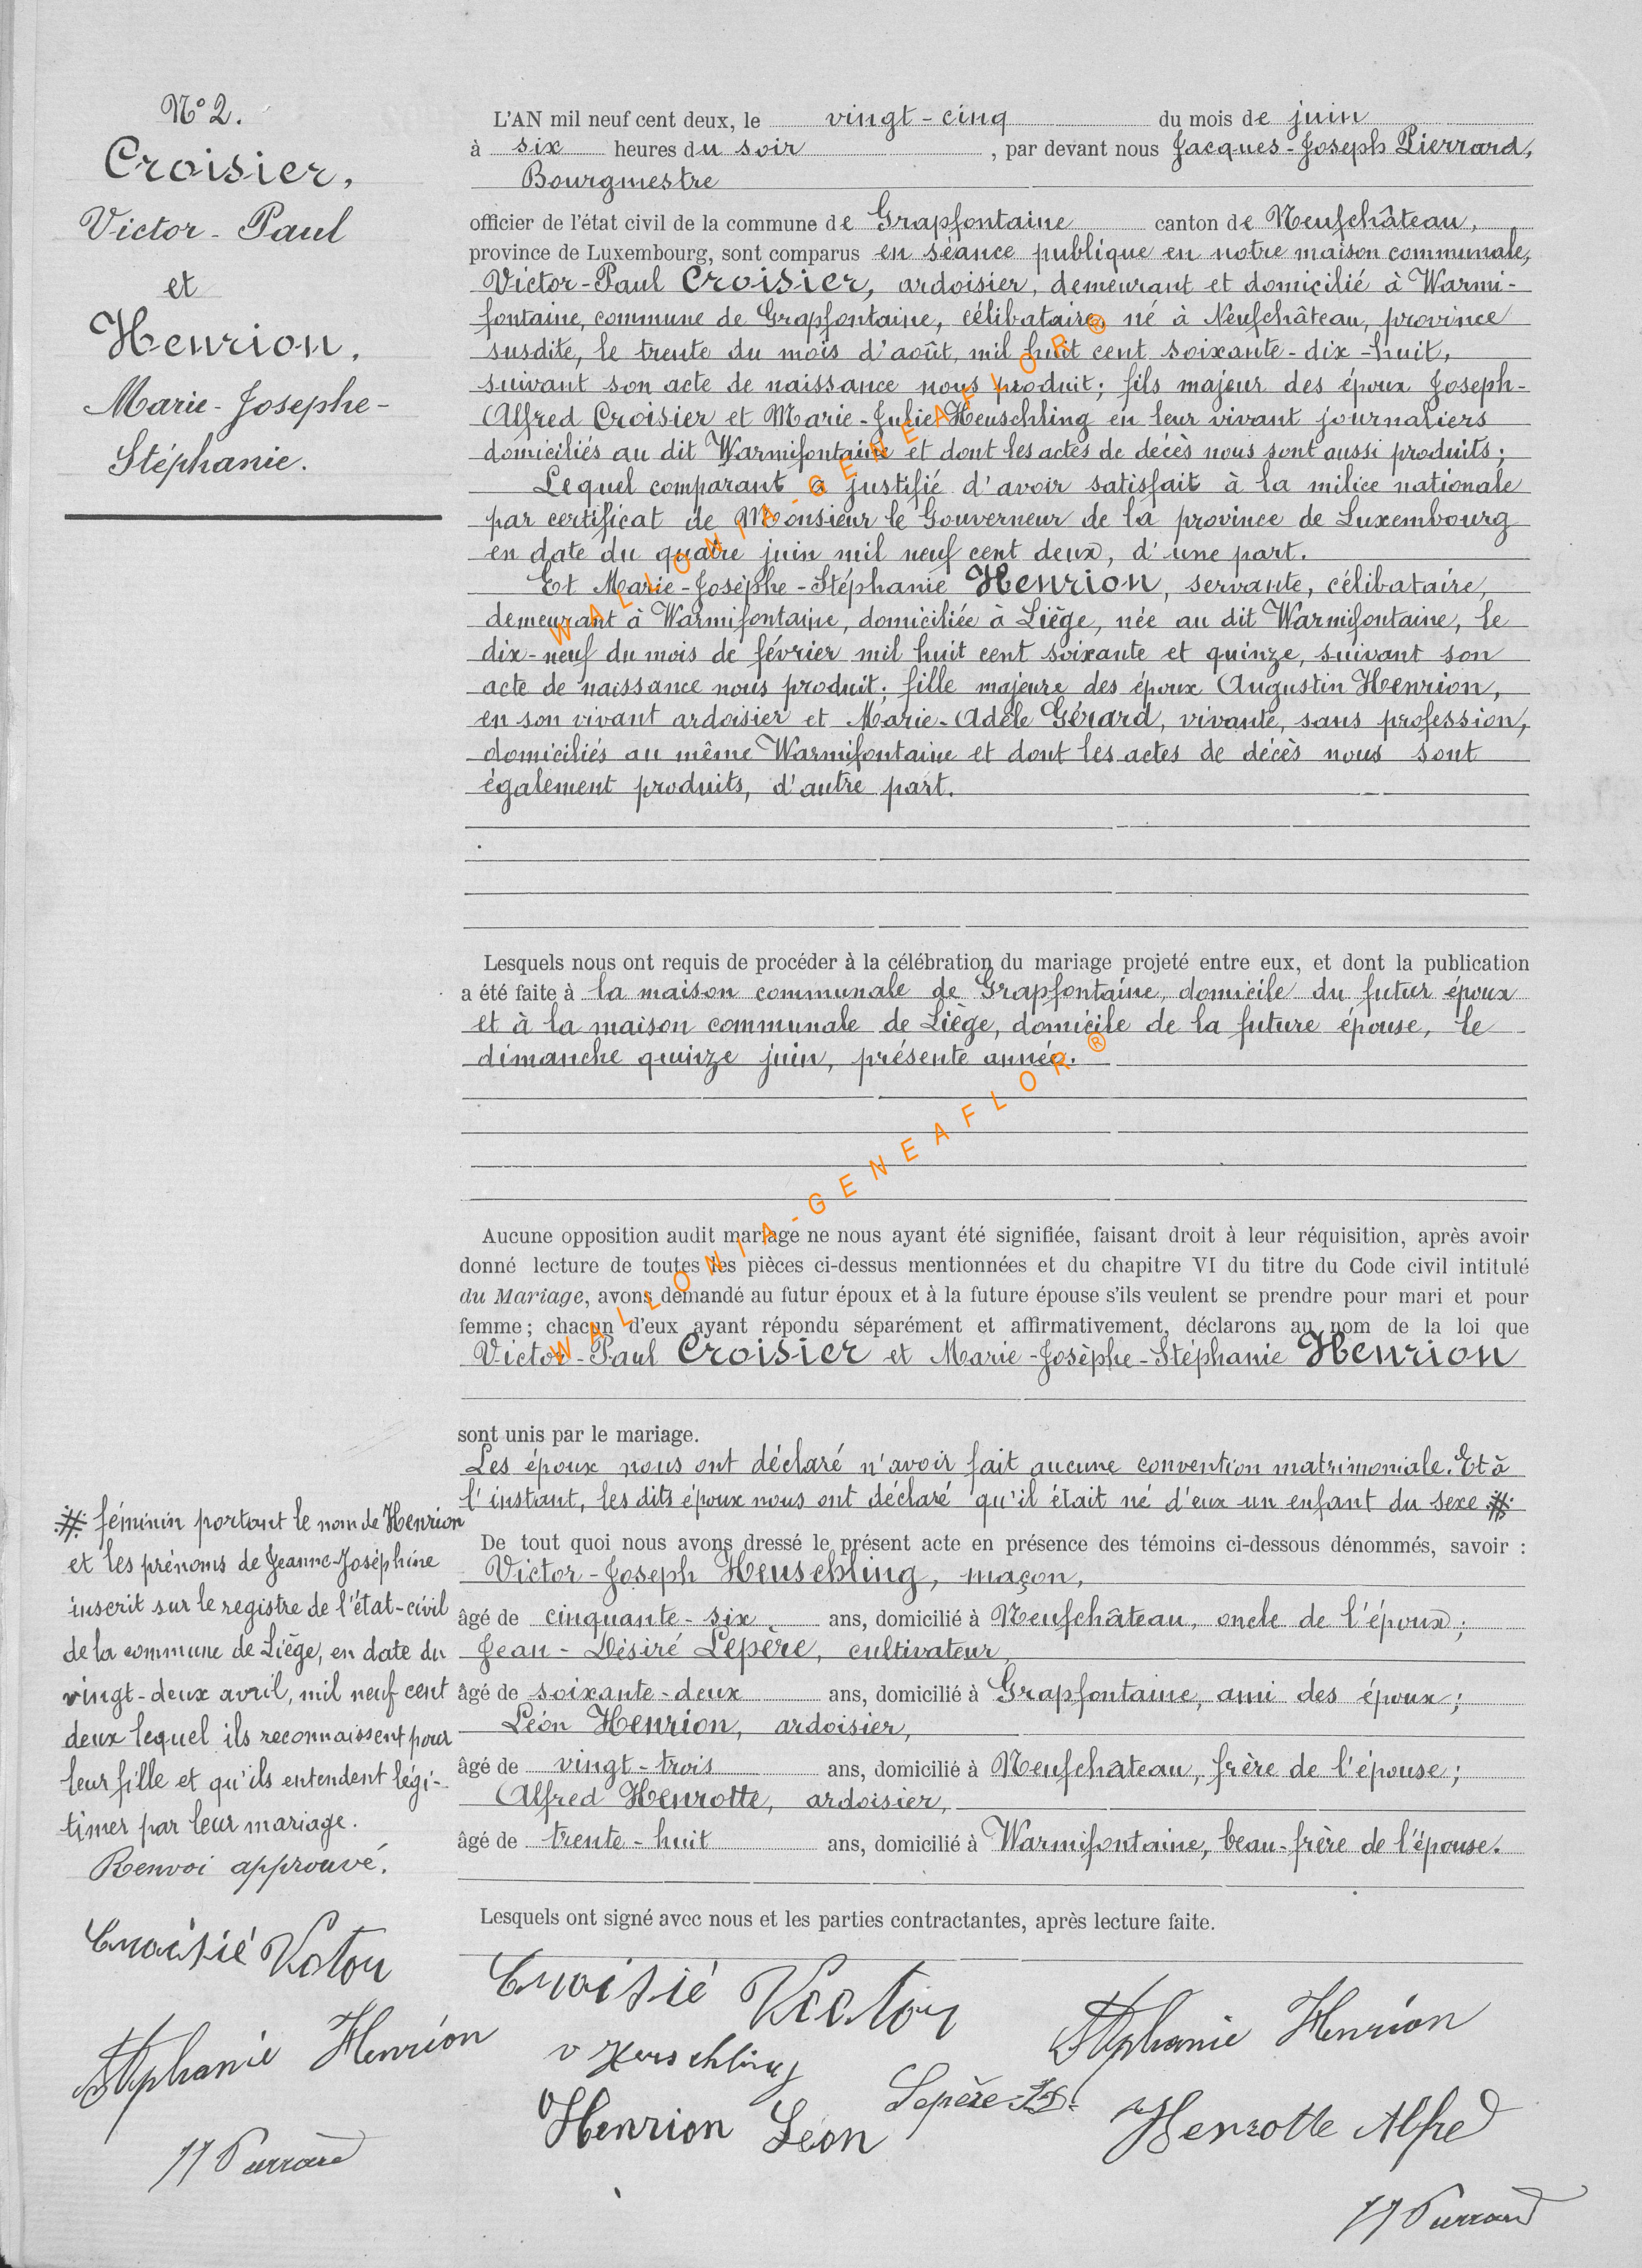 N° 2.
Croisier,
Victor - Paul
et
Henrion,
Marie - Josephe -
Stéphanie.
L'AN mil neuf cent deux, le vingt - cinq du mois de juin
à six heures du soir, par devant nous Jacques - Joseph Pierrard,
Bourgmestre
officier de l'état civil de la commune de Grapfontaine canton de Neufchâteau,
province de Luxembourg, sont comparus en séance publique en notre maison communale,
Victor - Paul Croisier, ardoisier, demeurant et domicilié à Warmi-
fontaine, commune de Grapfontaine, célibataire, né à Neufchâteau, province
susdite, le trente du mois d'août, mil huit cent soixante - dix - huit,
suivant son acte de naissance nous produit; fils majeur des époux Joseph-
Alfred Croisier et Marie - Julie Heuschling en leur vivant journaliers
domiciliés au dit Warmifontaine et dont les actes de décès nous sont aussi produits;
Lequel comparant a justifié d'avoir satisfait à la milice nationale
par certificat de Monsieur le Gouverneur de la province de Luxembourg
en date du quatre juin mil neuf cent deux, d'une part.
Et Marie - Josèphe - Stéphanie Henrion, servante, célibataire,
demeurant à Warmifontaine, domiciliée à Liège, née au dit Warmifontaine, le
dix - neuf du mois de février mil huit cent soixante et quinze, suivant son
acte de naissance nous produit; fille majeure des époux Augustin Henrion,
en son vivant ardoisier et Marie - Adèle Gérard, vivante, sans profession,
domiciliés au même Warmifontaine et dont les actes de décès nous sont
également produits, d'autre part.
WALLONIA-GENEAFLOR®
Lesquels nous ont requis de procéder à la célébration du mariage projeté entre eux, et dont la publication
a été faite à la maison communale de Grapfontaine, domicile du futur époux
et à la maison communale de Liège, domicile de la future épouse, le
dimanche quinze juin, présente année.
Aucune opposition audit mariage ne nous ayant été signifiée, faisant droit à leur réquisition, après avoir
donné lecture de toutes les pièces ci-dessus mentionnées et du chapitre VI du titre du Code civil intitulé
du Mariage, avons demandé au futur époux et à la future épouse s'ils veulent se prendre pour mari et pour
femme; chacun d'eux ayant répondu séparément et affirmativement, déclarons au nom de la loi que
Victor - Paul Croisier et Marie - Josèphe - Stéphanie Henrion
WALLONIA-GENEAFLOR®
sont unis par le mariage.
Les époux nous ont déclaré n'avoir fait aucune convention matrimoniale. Et à
l'instant, les dits époux nous ont déclaré qu'il était né d'eux un enfant du sexe #
# féminin portant le nom de Henrion
et les prénoms de Jeanne-Joséphine
inscrit sur le registre de l'état-civil
de la commune de Liège, en date du
vingt - deux avril, mil neuf cent
deux lequel ils reconnaissent pour
leur fille et qu'ils entendent légi-
timer par leur mariage.
Renvoi approuvé.
Croisié Victor
Stéphanie Henrion
JJ Pierrard
De tout quoi nous avons dressé le présent acte en présence des témoins ci-dessous dénommés, savoir :
Victor - Joseph Heuschling, maçon,
âgé de cinquante - six ans, domicilié à Neufchâteau, oncle de l'époux;
Jean - Désiré Lepère, cultivateur,
âgé de soixante - deux ans, domicilié à Grapfontaine, ami des époux;
Léon Henrion, ardoisier,
âgé de vingt - trois ans, domicilié à Neufchateau, frère de l'épouse;
Alfred Henrotte, ardoisier,
âgé de trente - huit ans, domicilié à Warmifontaine, beau - frère de l'épouse.
Lesquels ont signé avec nous et les parties contractantes, après lecture faite.
Croisié Victor
Stéphanie Henrion
v Heuschling
Lepère JD.
Henrion Léon
Henrotte Alfred
JJ Pierrard